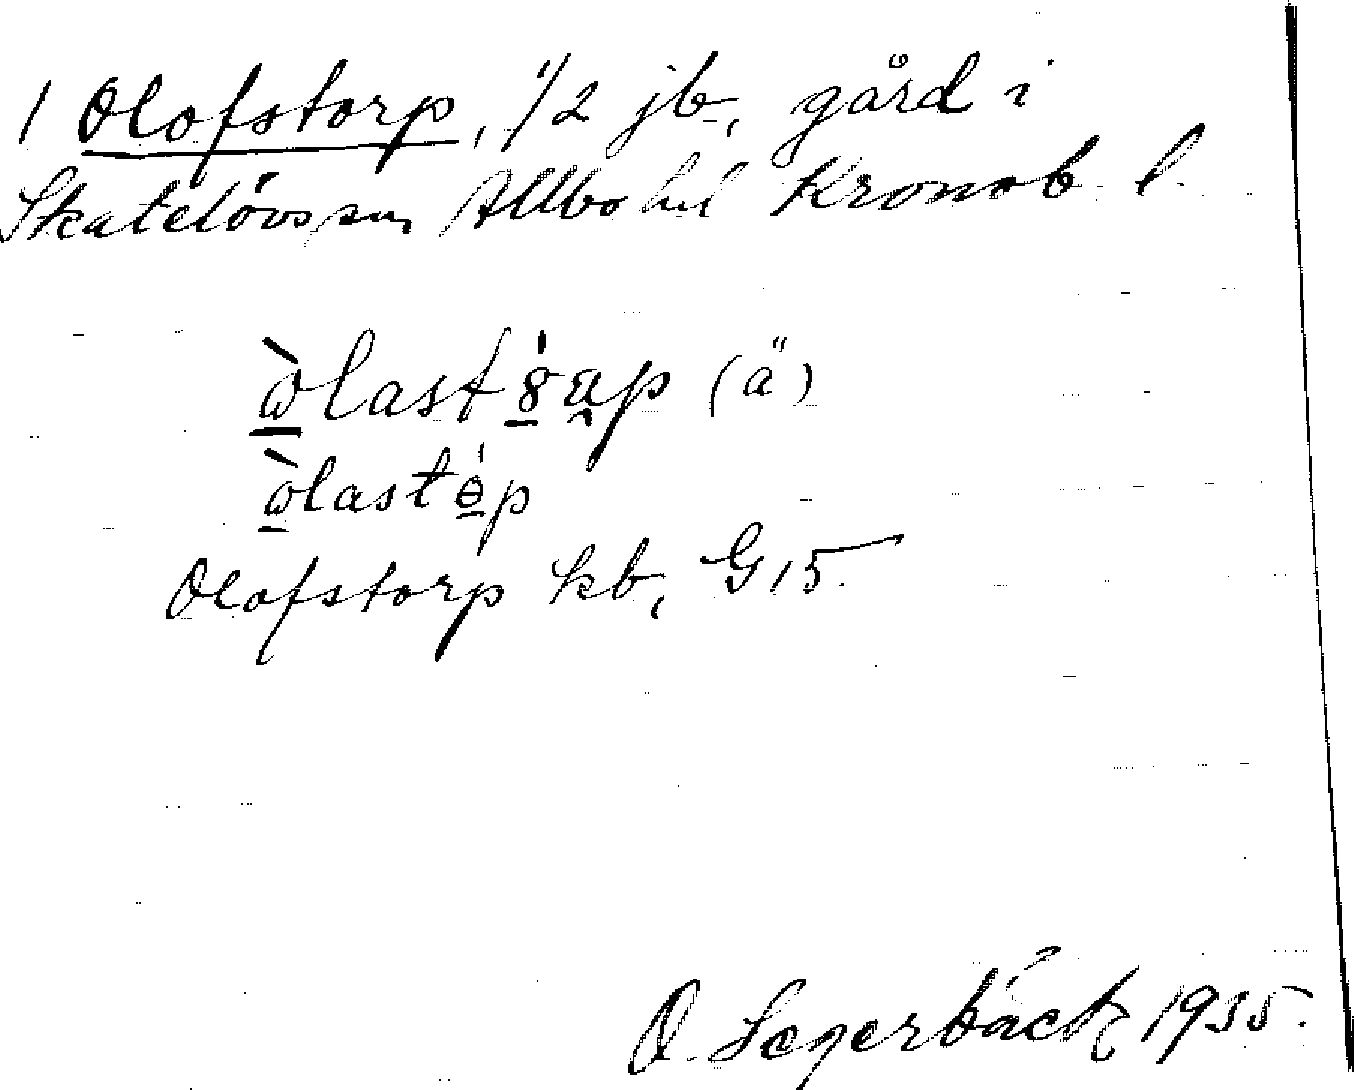 1 Olofstorp, 1/2 jb, gård i
Skatelövs sn Allbo hd Kronob. l.
(ä)
Olofstorp kb, G 15.
O. Segerbäck 1935.